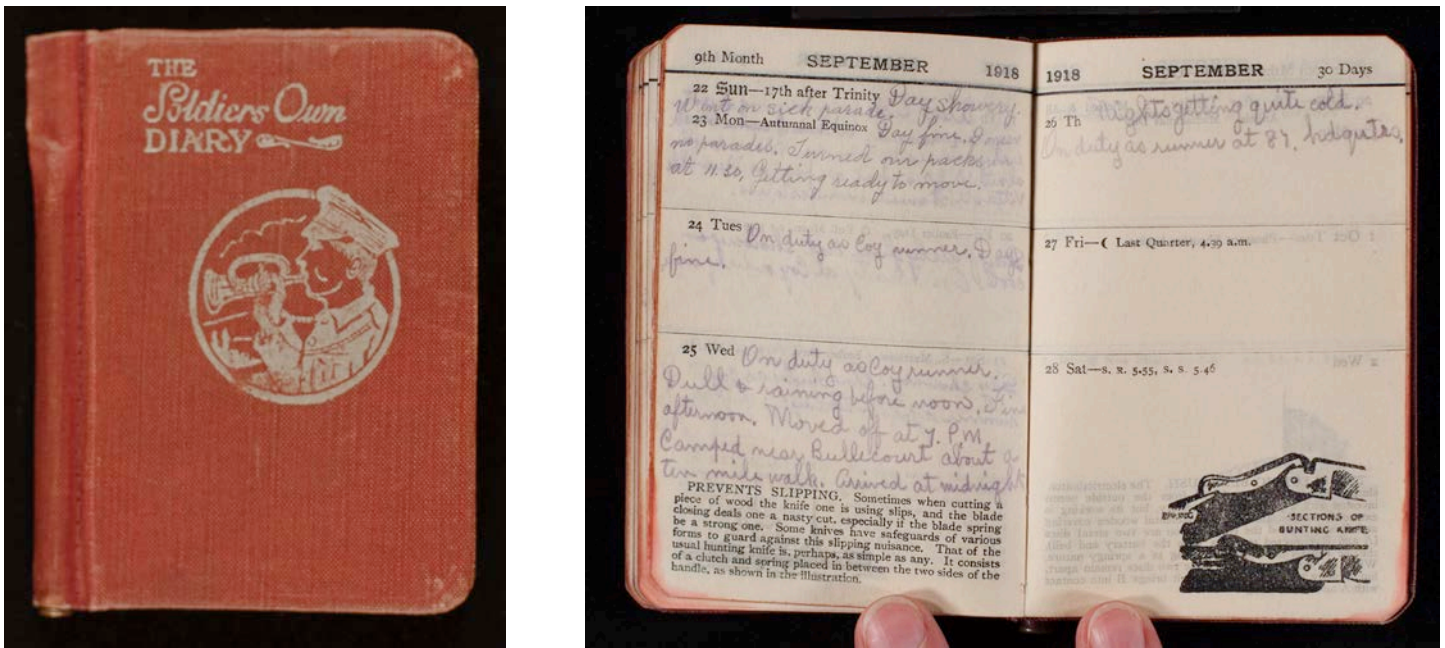 THE
Soldiers Own
DIARY
9th Month SEPTEMBER 1918
22 Sun—17th after Trinity Day showery.
Went on sick parade.
23 Mon—Autumnal Equinox Day fine.
no parades. Turned our packs
at 11.30, Getting ready to move.
24 Tues On duty as Coy runner. Day
fine.
25 Wed On duty as Coy runner.
Dull & raining before noon. Fine
afternoon. Moved off at 7. P.M.
Camped near Bullecourt about a
ten mile walk. Arrived at midnight
PREVENTS SLIPPING. Sometimes when cutting a
piece of wood the knife one is using slips, and the blade
closing deals one a nasty cut, especially if the blade spring
be a strong one. Some knives have safeguards of various
forms to guard against this slipping nuisance. That of the
usual hunting knife is, perhaps, as simple as any. It consists
of a clutch and spring placed in between the two sides of the
handle, as shown in the illustration.
1918 SEPTEMBER 30 Days
Nights getting quite cold.
26 Th On duty as runner at 87, hdqutrs.
27 Fri—☾ Last Quarter, 4.39 a.m.
28 Sat—S. R. 5.55, S. S. 5.46
SPRING
SECTIONS OF
HUNTING KNIFE